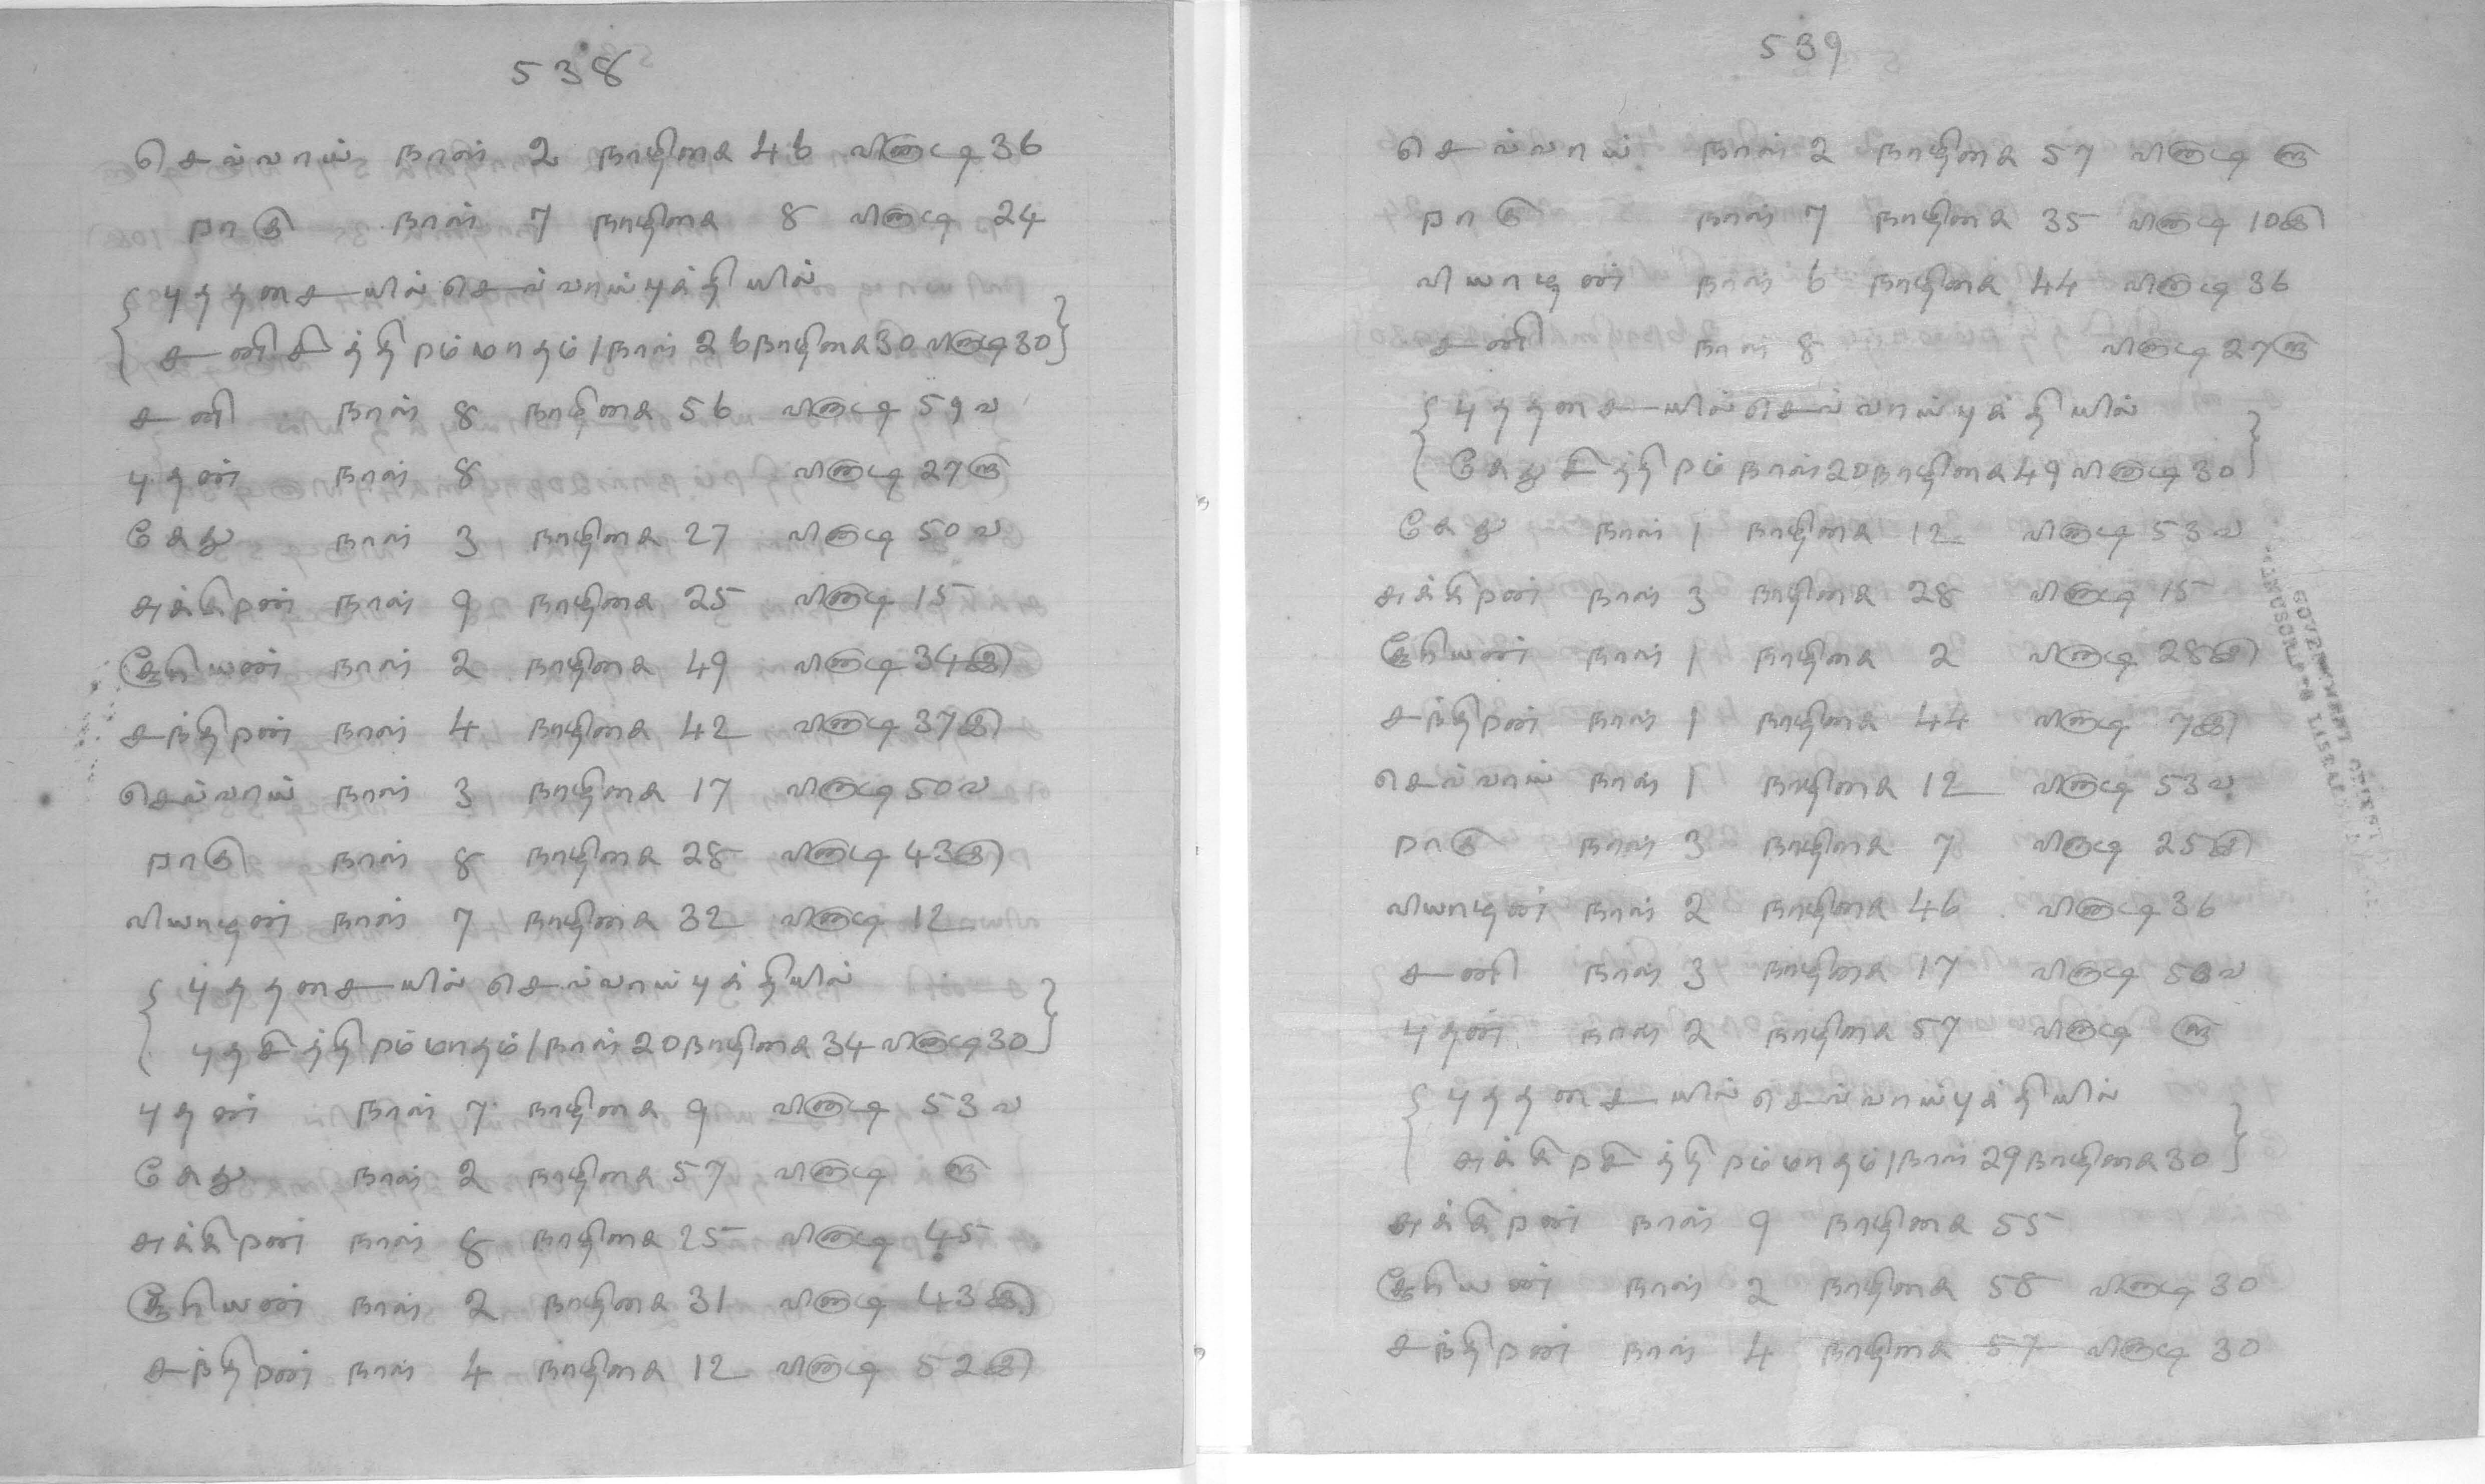 538
செவ்வாய் நாள் 2 நாழிகை 46 வினாடி 36
ராகு நாள் 7 நாழிகை 8 வினாடி 24
{ புததசையில் செவ்வாய்புக்தியில்
சனிசித்திரம் மாதம் / நாள் 26 நாழிகை 30 வினாடி 30 }
சனி நாள் 8 நாழிகை 56 வினாடி 59 வ
புதன் நாள் 8 வினாடி 27 ரு
கேது நாள் 3 நாழிகை 27 வினாடி 50 வ
சுக்கிரன் நாள் 9 நாழிகை 25 வினாடி 15
சூரியன் நாள் 2 நாழிகை 49 வினாடி 34 இ
சந்திரன் நாள் 4 நாழிகை 42 வினாடி 37 இ
செவ்வாய் நாள் 3 நாழிகை 17 வினாடி 50 வ
ராகு நாள் 8 நாழிகை 28 வினாடி 43 இ
வியாழன் நாள் 7 நாழிகை 32 வினாடி 12
{ புததசையில் செவ்வாய்புக்தியில்
புதசித்திரம் மாதம் / நாள் 20 நாழிகை 34 வினாடி 30 }
புதன் நாள் 7 நாழிகை 9 வினாடி 53 வ
கேது நாள் 2 நாழிகை 57 வினாடி ரு
சுக்கிரன் நாள் 8 நாழிகை 25 வினாடி 45
சூரியன் நாள் 2 நாழிகை 31 வினாடி 43 இ
சந்திரன் நாள் 4 நாழிகை 12 வினாடி 52 இ
539
செவ்வாய் நாள் 2 நாழிகை 57 வினாடி ரு
ராகு நாள் 7 நாழிகை 35 வினாடி 10 இ
வியாழன் நாள் 6 நாழிகை 44 வினாடி 36
சனி நாள் 8 வினாடி 27 ரு
{ புததசையில் செவ்வாய்புக்தியில்
கேதுசித்திரம் நாள் 20 நாழிகை 49 வினாடி 30 }
கேது நாள் 1 நாழிகை 12 வினாடி 53 வ
சுக்கிரன் நாள் 3 நாழிகை 28 வினாடி 15
சூரியன் நாள் 1 நாழிகை 2 வினாடி 28 இ
சந்திரன் நாள் 1 நாழிகை 44 வினாடி 7 இ
செவ்வாய் நாள் 1 நாழிகை 12 வினாடி 53 வ
ராகு நாள் 3 நாழிகை 7 வினாடி 25 இ
வியாழன் நாள் 2 நாழிகை 46 வினாடி 36
சனி நாள் 3 நாழிகை 17 வினாடி 50 வ
புதன் நாள் 2 நாழிகை 57 வினாடி ரு
{ புததசையில் செவ்வாய்புக்தியில்
சுக்கிரசித்திரம் மாதம் / நாள் 29 நாழிகை 30 }
சுக்கிரன் நாள் 9 நாழிகை 55
சூரியன் நாள் 2 நாழிகை 58 வினாடி 30
சந்திரன் நாள் 4 நாழிகை 57 வினாடி 30